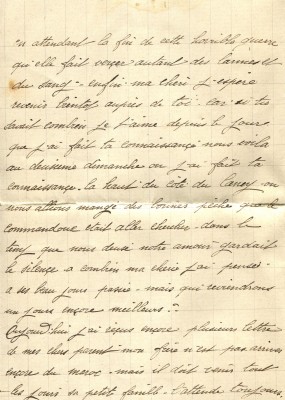 en attendant la fin de cette horrible guerre
qu'elle fait verser autant des larmes et
du sang - enfin ma cheri j'espere
revenir bientot aupres de toi. car si tu
savait combien je t'aime depuis le jour
que j'ai fait ta connaissance nous voila
au deuxieme dimanche ou j'ai fait ta
connaissance. la haut du coté du ou
nous allions mangé des bonnes pêche que le
commandone etait aller chercher - dans le
temp que nous deux notre amour gardait
le silence a combien ma cherie j'ai pensée
a ses beau jours passé - mais qui reviendrons
un jours encore meilleurs.
Aujourd'hui j'ai reçus encore plusieurs lettre
de mes chers parent mon frère n'est pas arrivé
encore du maroc - mais il doit venir tout
les jours sa petite famille - l'attende toujours.